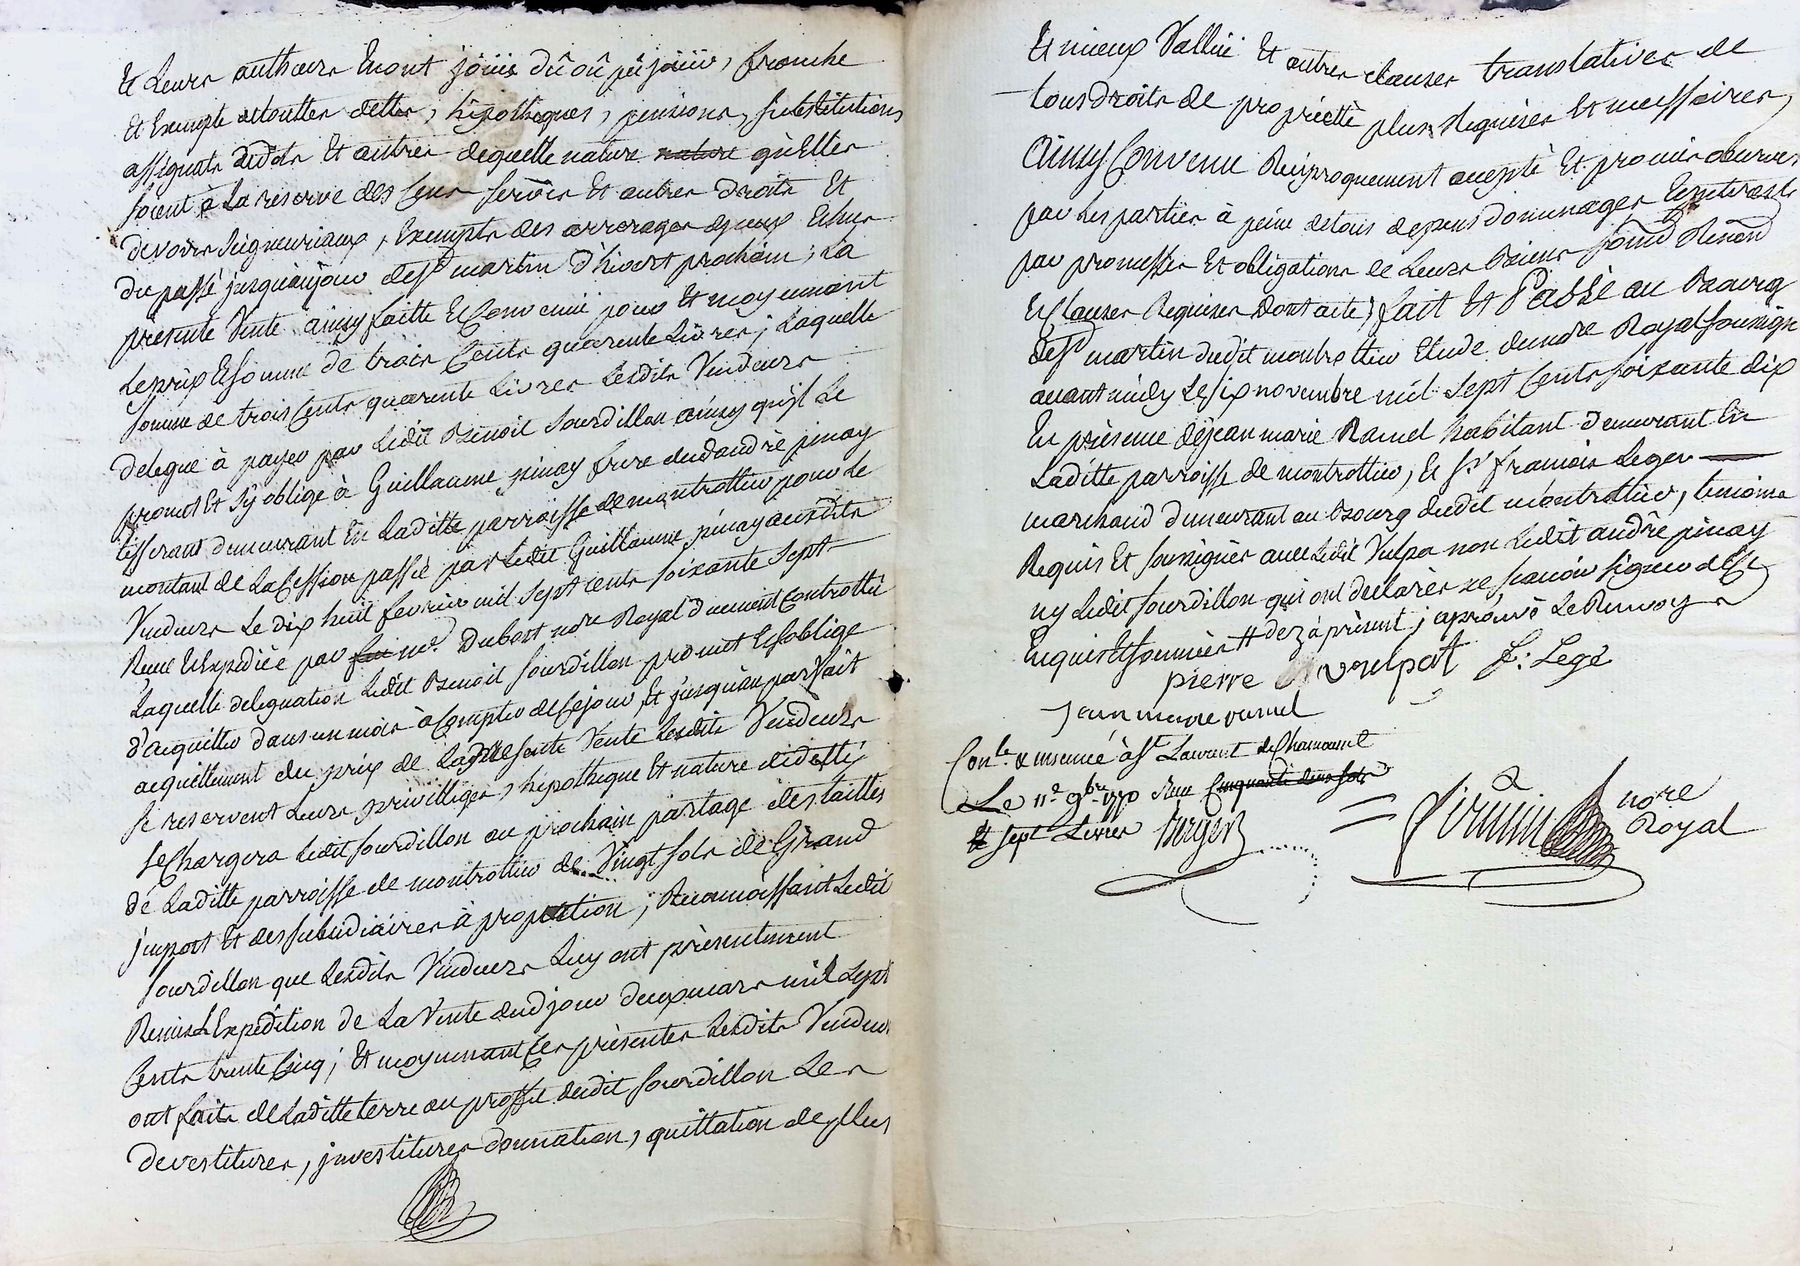 Et Leurs autheurs En ont joüis dû oû pû joüir, franche
Et Exempte detouttes dettes, hipotheques, pensions, substitutions
assignats dudots Et autres dequelle nature nature qu'Elles
soient à La reserve des Cens servis Et autres droits Et
devoirs seigneuriaux, Exempte des arrerages dyceux Echus
du passé jusquaujour desᵗ martin d'hivert prochain; La
presente Vente ainsy faitte Et Convenüe pour Et moyennant
Leprix Et somme de trois Cents quarente Livres; Laquelle
somme de trois Cents quarente Livres Lesdits Vendeurs
delegue à payer par Ledit Benoit Sourdillon ainsy qu'jl Le
promet Et s'y oblige à Guillaume pinay frere dudandrè pinay
tisserant demeurant En Laditte parroisse de montrottier pour Le
montant de La Cession passée par Ledit Guillaume pinay auxdits
Vendeurs Le dix huit fevrier mil sept cents soixante sept
Reçüe Et Expediée par feu mᵉ. Dubost noʳᵉ Royal dument Controllée
Laquelle delegnation Ledit Benoit sourdillon promet Et s'oblige
d'acquitter dans un mois à Compter de Cejour, Et jusqu'àu parffait
acquittement du prix de La presente Vente Lesdits Vendeurs
se reservent Leurs privilliges, hipotheque Et nature didetté
se Chargera Ledit sourdillon au prochain partage des tailles
dé Laditte parroisse de montrottier de Vingt sols de Grand
jmpost Et des subsidiaires à proportion; Reconnoissant Ledit
sourdillon que Lesdits Vendeurs Luy ont présentement
Remis L'Expedition de La Vente dud jour deux mars mil sept
Cents trente Cinq; Et moyennant Ces présentes Lesdits Vendeurs
ont faits de Laditte terre au proffit dudit sourdillon Les
devestitures, jnvestitures donnation, quittation de plus
Et mieux Vallüe Et autres clauses translatives de
tous droits de proprieté plus Requises Et necessaires,
Ainsy Convenu Reciproquement accepté Et promis observer
par Les parties à peine de tous depens dommages Et interests
par promesses Et obligations de Leurs Biens soumᵒⁿ Renonᵒⁿ
Et Clauses Requises dont acte, fait Et Passé au Bourg
desᵗ martin dudit montrottier Etude dunoʳᵉ Royal soussigné
avant midy Le six novembre mil sept Cents soixante dix
En présence déjean marie Ramel habitant demeurant En
Laditte parroisse de montrottier, Et sʳ françois Leger
marchand demeurant au Bourg dudit montrottier, temoins
Requis Et soussignés avec Ledit Vulpa non Ledit andrè pinay
ny Ledit sourdillon qui ont declarés ne sçavoir signer de Ce
Enquis Et sommés # dezàprèsent j aprouvé Le Renvoy
pierre voulpat f: Legé
jean marie ramel
Conˡᵉ. & insinué àSᵗ Laurent de Chamousset
Le 11ᵉ 9ᵇʳᵉ 1770 Reçu Cinquante deux sols
et sept Livres
noʳᵉ
Royal